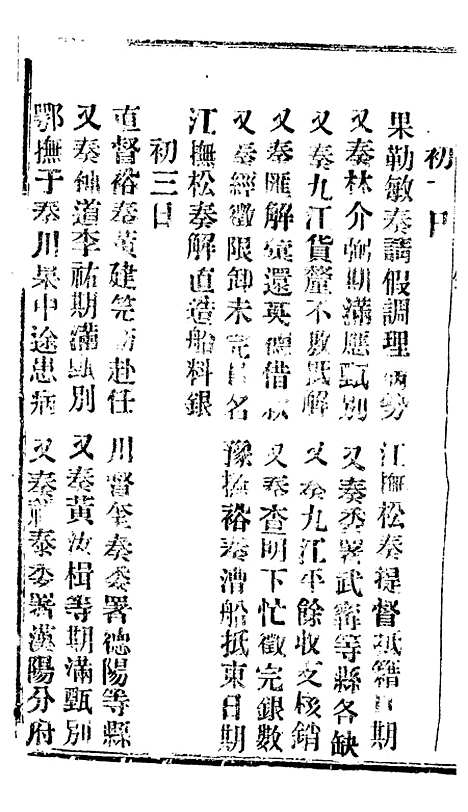 初一日
果勒敏奏請假調理病勢　江撫松奏提督抵籍日期
又奏林介弼期滿應甄別　又奏委署武寧等縣各缺
又奏九江貨釐不敷抵解　又奏九江平餘收支核銷
又奏匯解彙還英德借款　又奏查明下忙徵完銀數
又奏經徵限卸未完員名　豫撫裕奏漕船抵東日期
江撫松奏解直造船料銀
初三日
直督裕奏黃建筦赴任　川督奎奏委署德陽等縣
又奏道李祐期滿甄別　又奏黃汝楫等期滿甄別
鄂撫于奏川臬中途患病　又奏泰委署漢陽分府